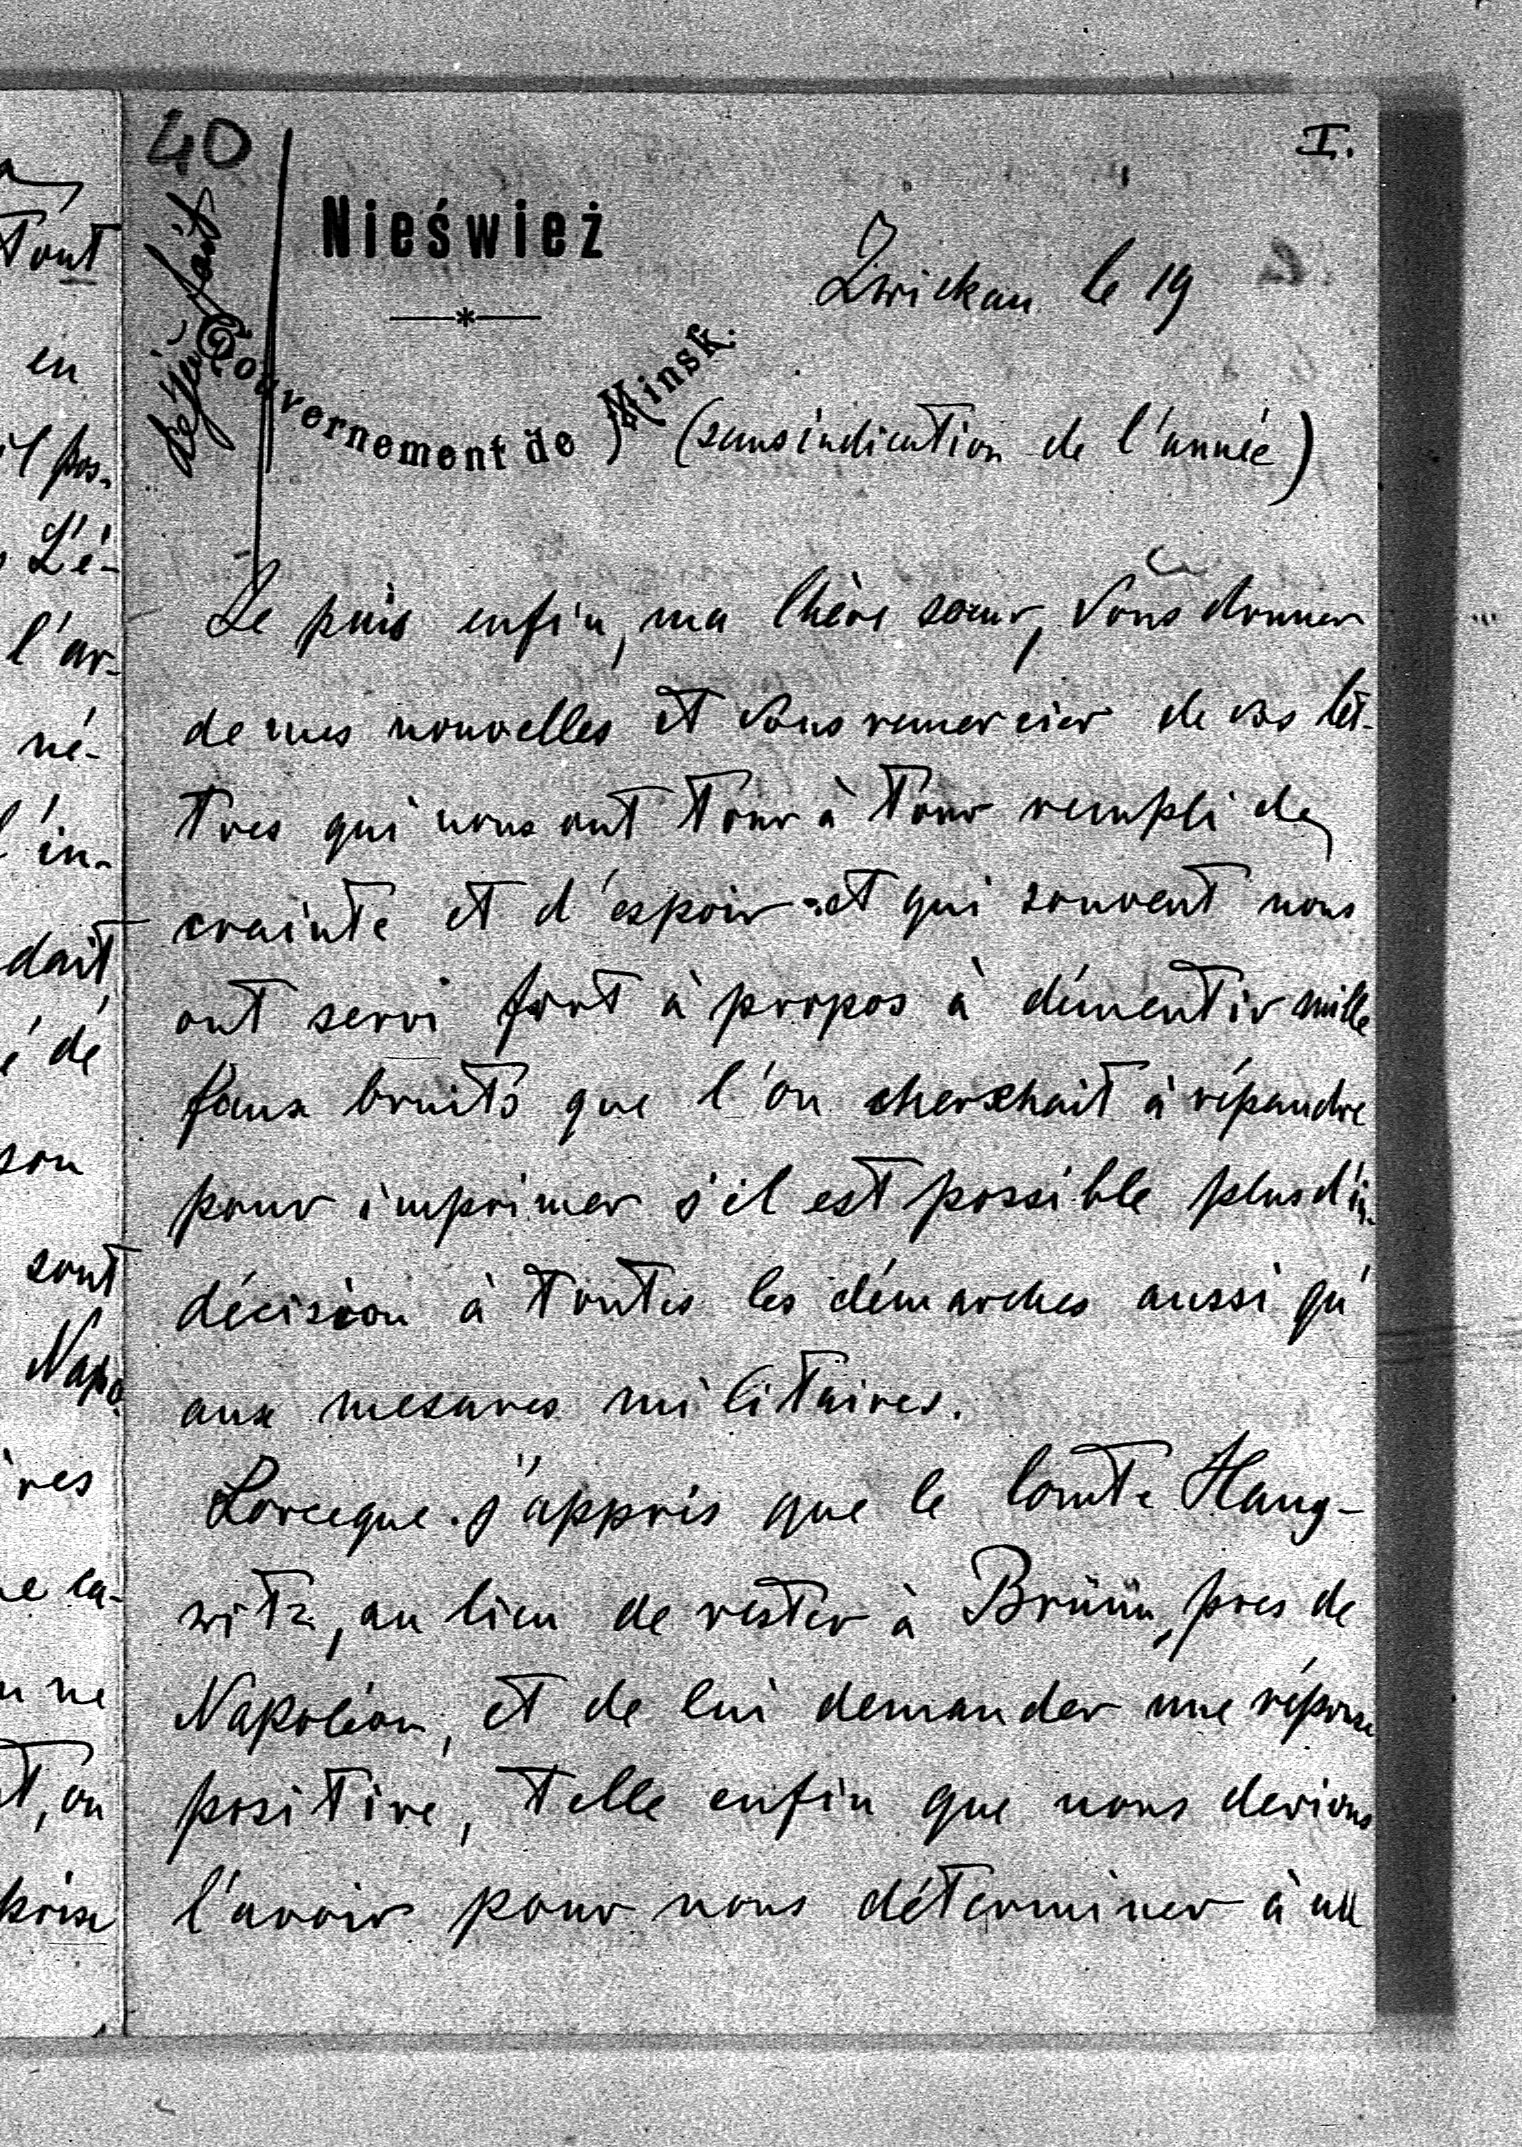 40
I.
déjà fait
Nieśwież
Gouvernement de Minsk.
Zwickau le 19
(sans indication de l'année)
Je puis enfin, ma chère sœur, vous donner
de mes nouvelles et vous remercier de vos let-
tres qui nous ont tour à tour rempli de
crainte et d'espoir et qui souvent nous
ont servi fort à propos à démentir mille
faux bruits que l'on cherchait à répandre
pour imprimer s'il est possible plus d'in-
décision à toutes les démarches aussi qu'
aux mesures militaires.
Lorsque j'appris que le Comte Haug-
witz, au lieu de rester à Brünn, pres de
Napoléon, et de lui demander une réponse
positive, telle enfin que nous devions
l'avoir pour nous déterminer à un
tout
en
il pos-
L'é-
l'ar-
né-
l'in-
dait
é dé
son
sont
Napo
res
ne
t, on
prise